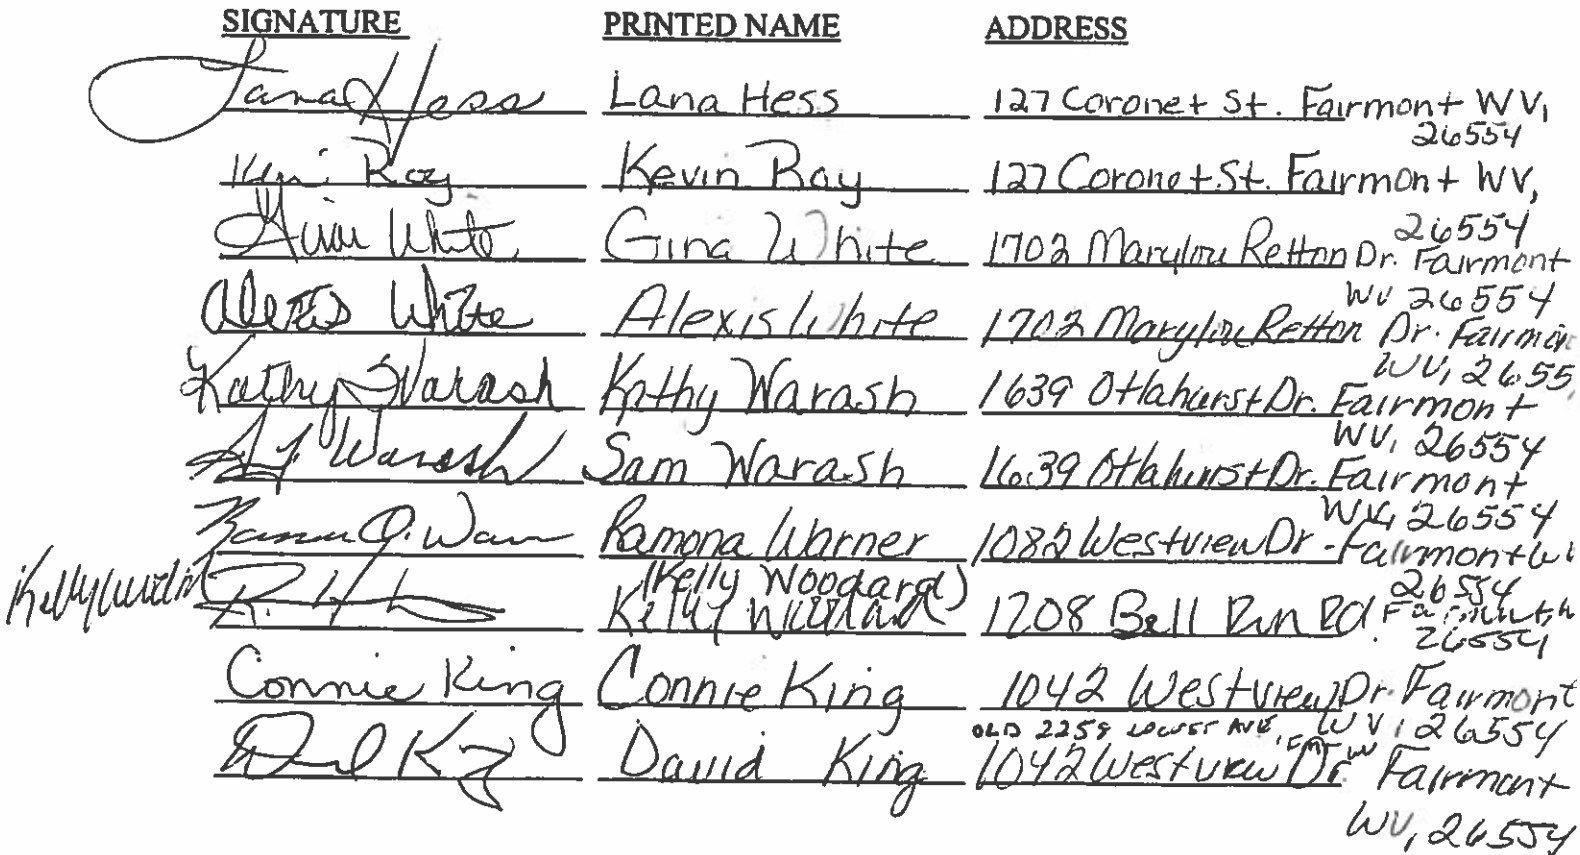 SIGNATURE PRINTED NAME ADDRESS
Lana Hess Lana Hess 127 Coronet St. Fairmont WV,
26554
Kevin Ray Kevin Ray 127 Coronet St. Fairmont WV,
26554
Gina White Gina White 1702 Marylou Retton Dr. Fairmont
WV 26554
Alexis White Alexis White 1702 Marylou Retton Dr. Fairmon
WV, 2655
Kathy Warash Kathy Warash 1639 Otlahurst Dr. Fairmont
WV, 26554
Warash Sam Warash 1639 Otlahurst Dr. Fairmont
WV, 26554
Ramona Warner 1082 Westview Dr - Fairmont WV
26554
(Kelly Woodard)
Kelly 1208 Bell Run Rd.
26554
Connie King Connie King 1042 Westview Dr. Fairmont
WV, 26554
OLD 2258 LOCUST AVE,
David King David King 1042 Westview Dr. Fairmont
WV, 26554